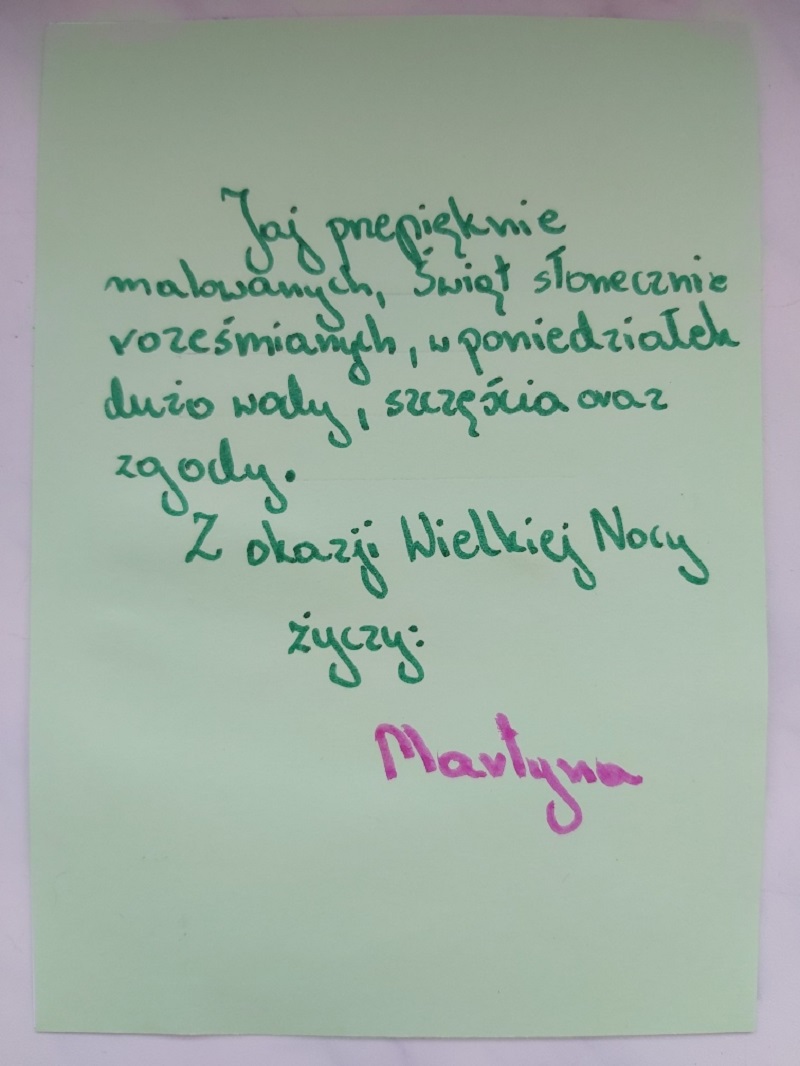 Jaj przepięknie
malowanych, Świąt słonecznie
roześmianych, w poniedziałek
dużo wody, szczęścia oraz
zgody.
Z okazji Wielkiej Nocy
życzy:
Martyna